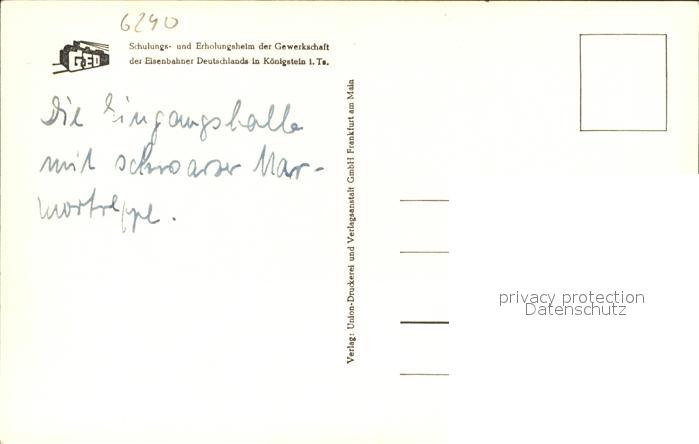 6240
GED
Schulungs- und Erholungsheim der Gewerkschaft
der Eisenbahner Deutschlands in Königstein i. Ts.
Die Eingangshalle
mit schwarzer Mar-
mortreppe.
Verlag: Union-Druckerei und Verlagsanstalt GmbH Frankfurt am Main
privacy protection
Datenschutz